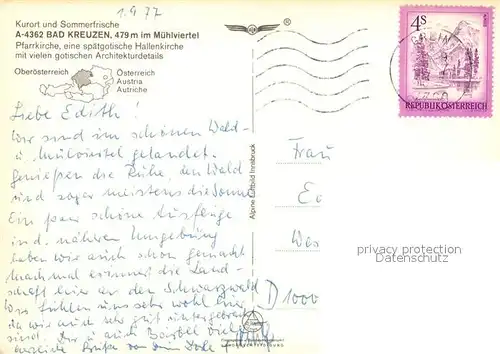 1.9.77
Kurort und Sommerfrische
A-4362 BAD KREUZEN, 479 m im Mühlviertel
Pfarrkirche, eine spätgotische Hallenkirche
mit vielen gotischen Architekturdetails
Oberösterreich
Österreich
Austria
Autriche
®
4S
REPUBLIK ÖSTERREICH
GREIN
Liebe Edith!
Wir sind im schönen Wald-
u. Mühlviertel gelandet.
Genießen die Ruhe, den Wald
und sogar meistens die Sonne.
Ein paar schöne Ausflüge
in d. näheren Umgebung
haben wir auch schon gemacht
Manchmal erinnert die Land-
schaft hier an den Schwarzwald
Wir fühlen uns sehr wohl hier,
da wir auch sehr gut untergebracht
sind. Dir u. auch Bärbel viele
herzliche Grüße von
Alpine Luftbild Innsbruck
Frau
Ed
Wes
D 1000
privacy protection
Datenschutz